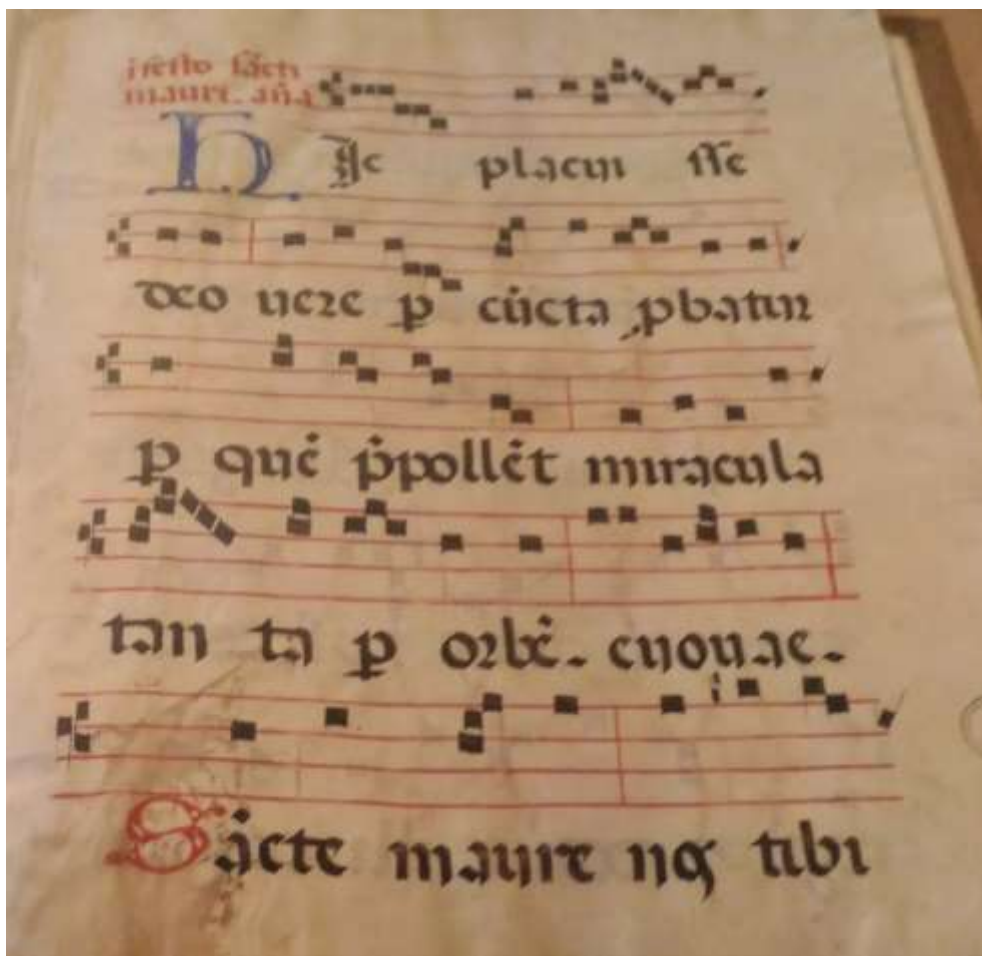 i festo sācti
mauri. aña
Hic placui sse
deo uere p cūcta pbatur
p quē p̄pollēt miracula
tan ta p orbē. euouae.
Sācte maure nos tibi